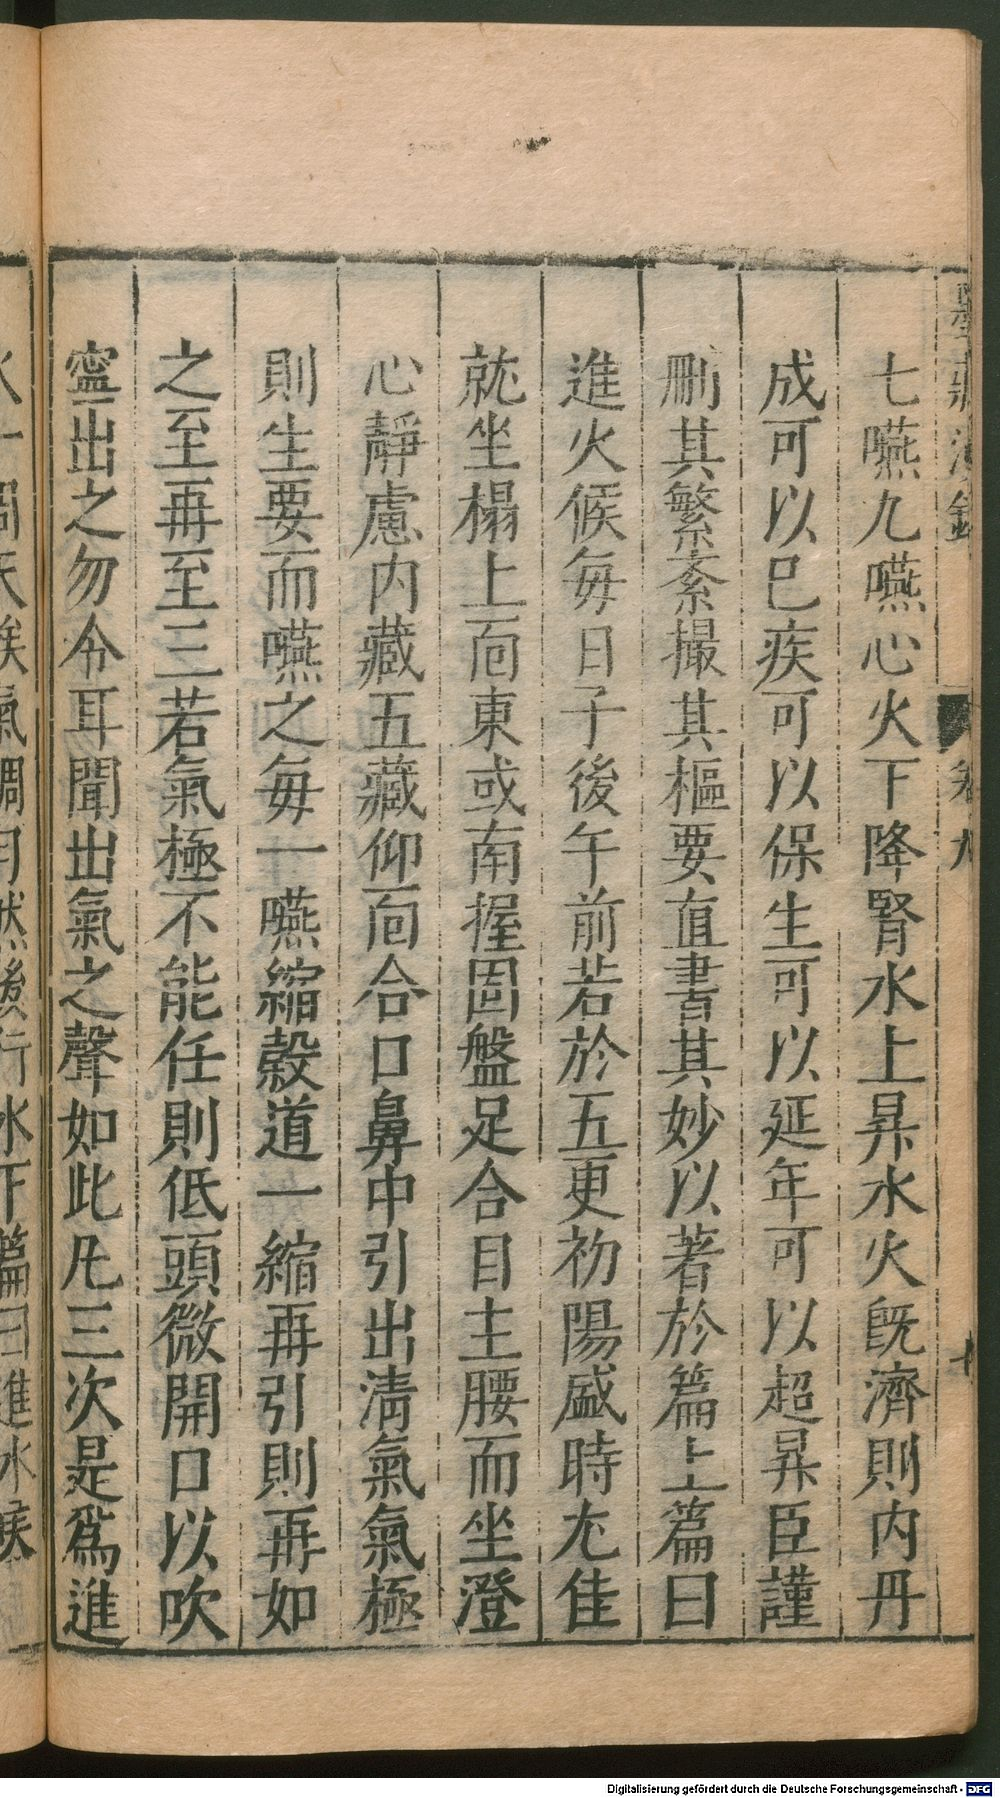 七嚥九嚥心火下降腎水上昇水火旣濟則内丹
成可以已疾可以保生可以延年可以超昇臣謹
刪其繁紊撮其樞要直書其妙以著於篇上篇曰
進火候每日子後午前若於五更初陽盛時尤佳
就坐榻上面東或南握固盤足合目主腰而坐澄
心靜慮内藏五藏仰面合口鼻中引出淸氣氣極
則生要而嚥之每一嚥縮穀道一縮再引則再如
之至再至三若氣極不能任則低頭微開口以吹
寧出之勿令耳聞出氣之聲如此凡三次是爲進
Digitalisierung gefördert durch die Deutsche Forschungsgemeinschaft - DFG